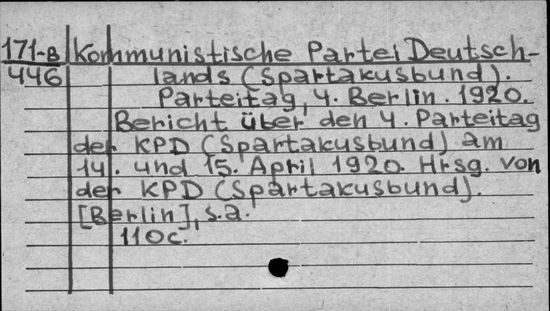 171-B Kommunistische Partei Deutsch-
446 lands (Spartakusbund).
Parteitag, 4. Berlin. 1920.
Bericht über den 4. Parteitag
der KPD (Spartakusbund) am
14. und 15. April 1920. Hrsg. von
der KPD (Spartakusbund).
[Berlin], s.a.
110c.